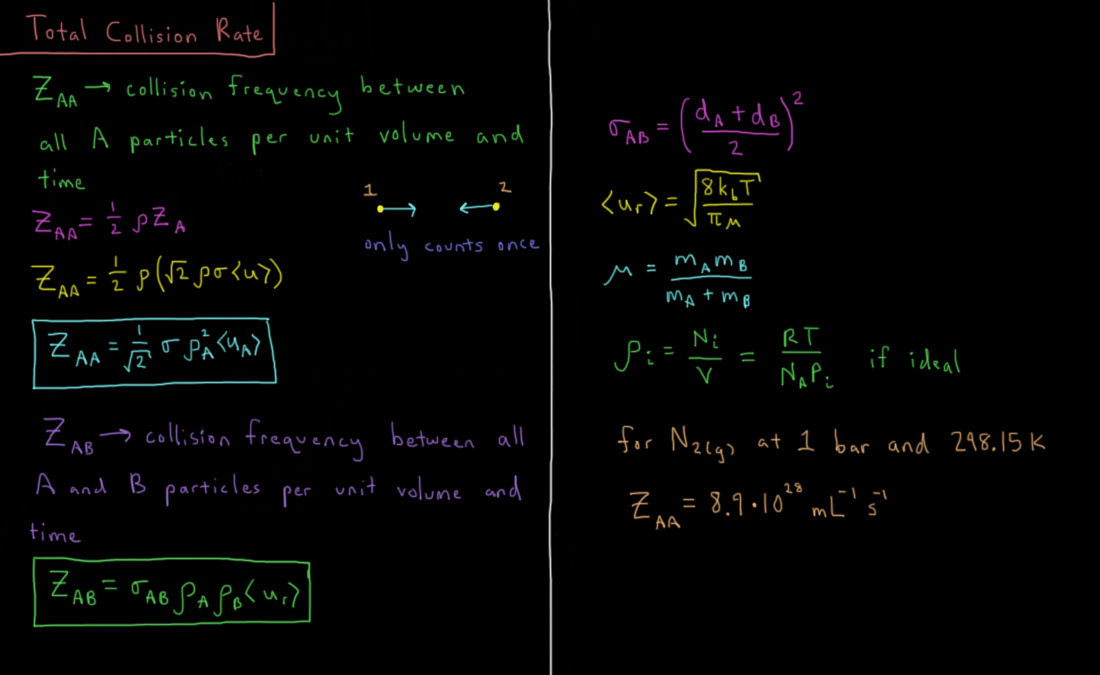 Total Collision Rate
Z_AA → collision frequency between
all A particles per unit volume and
time
Z_AA = 1/2 ρ Z_A
1 2
only counts once
Z_AA = 1/2 ρ(√2 ρσ<u>)
Z_AA = 1/√2 σ ρ_A^2 <u_A>
Z_AB → collision frequency between all
A and B particles per unit volume and
time
Z_AB = σ_AB ρ_A ρ_B <u_r>
σ_AB = ((d_A + d_B)/2)^2
<u_r> = √(8k_bT/πμ)
μ = m_A m_B/(m_A + m_B)
ρ_i = N_i/V = RT/(N_A P_i) if ideal
for N_2(g) at 1 bar and 298.15 K
Z_AA = 8.9·10^28 mL^-1 s^-1